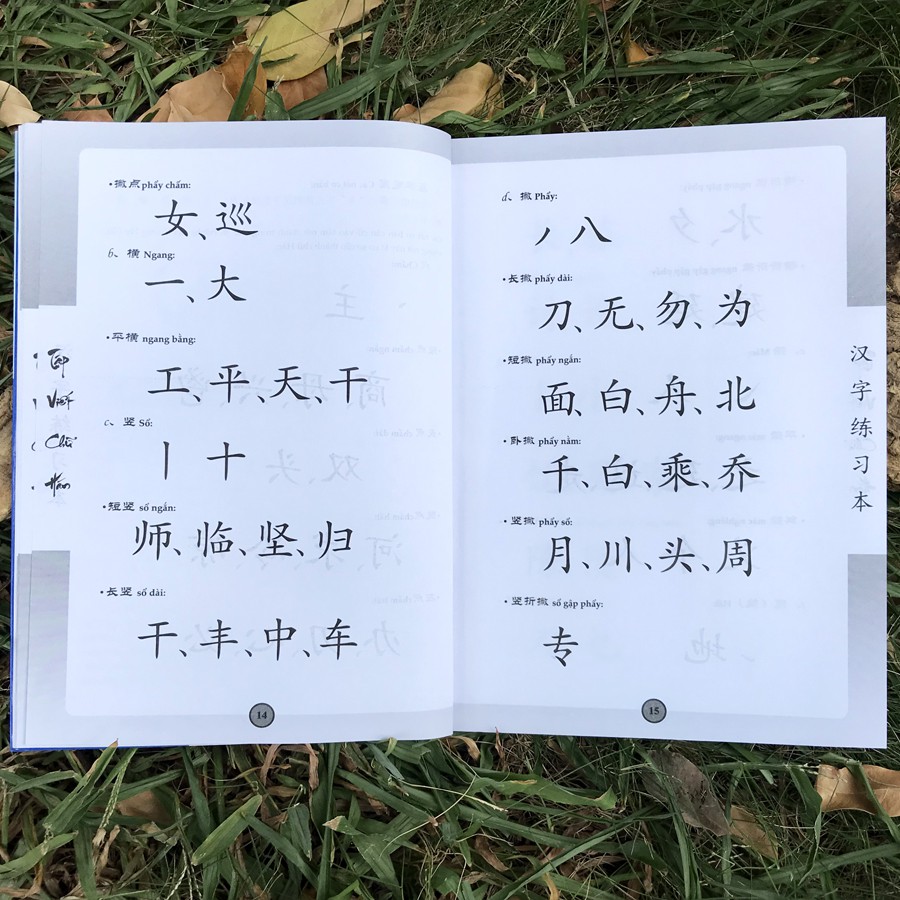 • 撇点 phẩy chấm:
女、巡
b、横 Ngang:
一、大
• 平横 ngang bằng:
工、平、天、干
c、竖 Sổ:
丨 十
• 短竖 sổ ngắn:
师、临、坚、归
• 长竖 sổ dài:
干、丰、中、车
14
Tập
Viết
Chữ
Hán
d、撇 Phẩy:
丿 八
• 长撇 phẩy dài:
刀、无、勿、为
• 短撇 phẩy ngắn:
面、白、舟、北
• 卧撇 phẩy nằm:
千、白、乘、乔
• 竖撇 phẩy sổ:
月、川、头、周
• 竖折撇 sổ gập phẩy:
专
15
汉字练习本